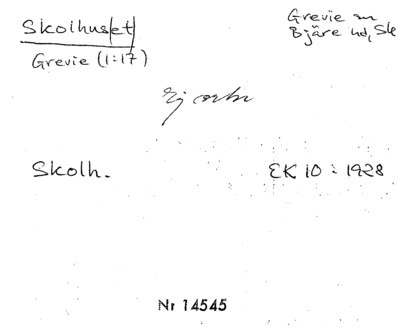 Skolhuset
Grevie sn
Bjäre hd, Sk
Grevie (1:17)
Ej
Skolh.
EK 10 : 1928
Nr 14545